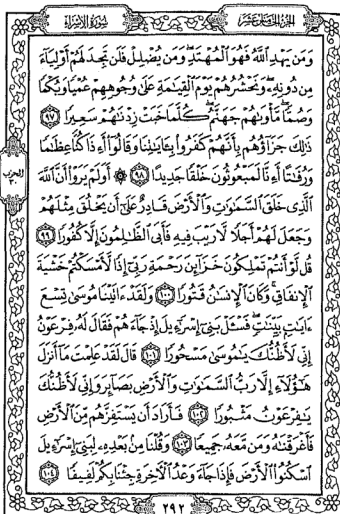 الجزء الخامس عشر
سورة الإسراء
وَمَن يَهْدِ ٱللَّهُ فَهُوَ ٱلْمُهْتَدِ وَمَن يُضْلِلْ فَلَن تَجِدَ لَهُمْ أَوْلِيَآءَ
مِن دُونِهِۦ وَنَحْشُرُهُمْ يَوْمَ ٱلْقِيَٰمَةِ عَلَىٰ وُجُوهِهِمْ عُمْيًا وَبُكْمًا
وَصُمًّا مَّأْوَىٰهُمْ جَهَنَّمُ كُلَّمَا خَبَتْ زِدْنَٰهُمْ سَعِيرًا ٩٧
ذَٰلِكَ جَزَآؤُهُم بِأَنَّهُمْ كَفَرُوا۟ بِـَٔايَٰتِنَا وَقَالُوٓا۟ أَءِذَا كُنَّا عِظَٰمًا
وَرُفَٰتًا أَءِنَّا لَمَبْعُوثُونَ خَلْقًا جَدِيدًا ٩٨ ۞ أَوَلَمْ يَرَوْا۟ أَنَّ ٱللَّهَ
ٱلَّذِى خَلَقَ ٱلسَّمَٰوَٰتِ وَٱلْأَرْضَ قَادِرٌ عَلَىٰٓ أَن يَخْلُقَ مِثْلَهُمْ
وَجَعَلَ لَهُمْ أَجَلًا لَّا رَيْبَ فِيهِ فَأَبَى ٱلظَّٰلِمُونَ إِلَّا كُفُورًا ٩٩
قُل لَّوْ أَنتُمْ تَمْلِكُونَ خَزَآئِنَ رَحْمَةِ رَبِّىٓ إِذًا لَّأَمْسَكْتُمْ خَشْيَةَ
ٱلْإِنفَاقِ وَكَانَ ٱلْإِنسَٰنُ قَتُورًا ١٠٠ وَلَقَدْ ءَاتَيْنَا مُوسَىٰ تِسْعَ
ءَايَٰتٍۭ بَيِّنَٰتٍ فَسْـَٔلْ بَنِىٓ إِسْرَٰٓءِيلَ إِذْ جَآءَهُمْ فَقَالَ لَهُۥ فِرْعَوْنُ
إِنِّى لَأَظُنُّكَ يَٰمُوسَىٰ مَسْحُورًا ١٠١ قَالَ لَقَدْ عَلِمْتَ مَآ أَنزَلَ
هَٰٓؤُلَآءِ إِلَّا رَبُّ ٱلسَّمَٰوَٰتِ وَٱلْأَرْضِ بَصَآئِرَ وَإِنِّى لَأَظُنُّكَ
يَٰفِرْعَوْنُ مَثْبُورًا ١٠٢ فَأَرَادَ أَن يَسْتَفِزَّهُم مِّنَ ٱلْأَرْضِ
فَأَغْرَقْنَٰهُ وَمَن مَّعَهُۥ جَمِيعًا ١٠٣ وَقُلْنَا مِنۢ بَعْدِهِۦ لِبَنِىٓ إِسْرَٰٓءِيلَ
ٱسْكُنُوا۟ ٱلْأَرْضَ فَإِذَا جَآءَ وَعْدُ ٱلْـَٔاخِرَةِ جِئْنَا بِكُمْ لَفِيفًا ١٠٤
٢٩٢
الحزب